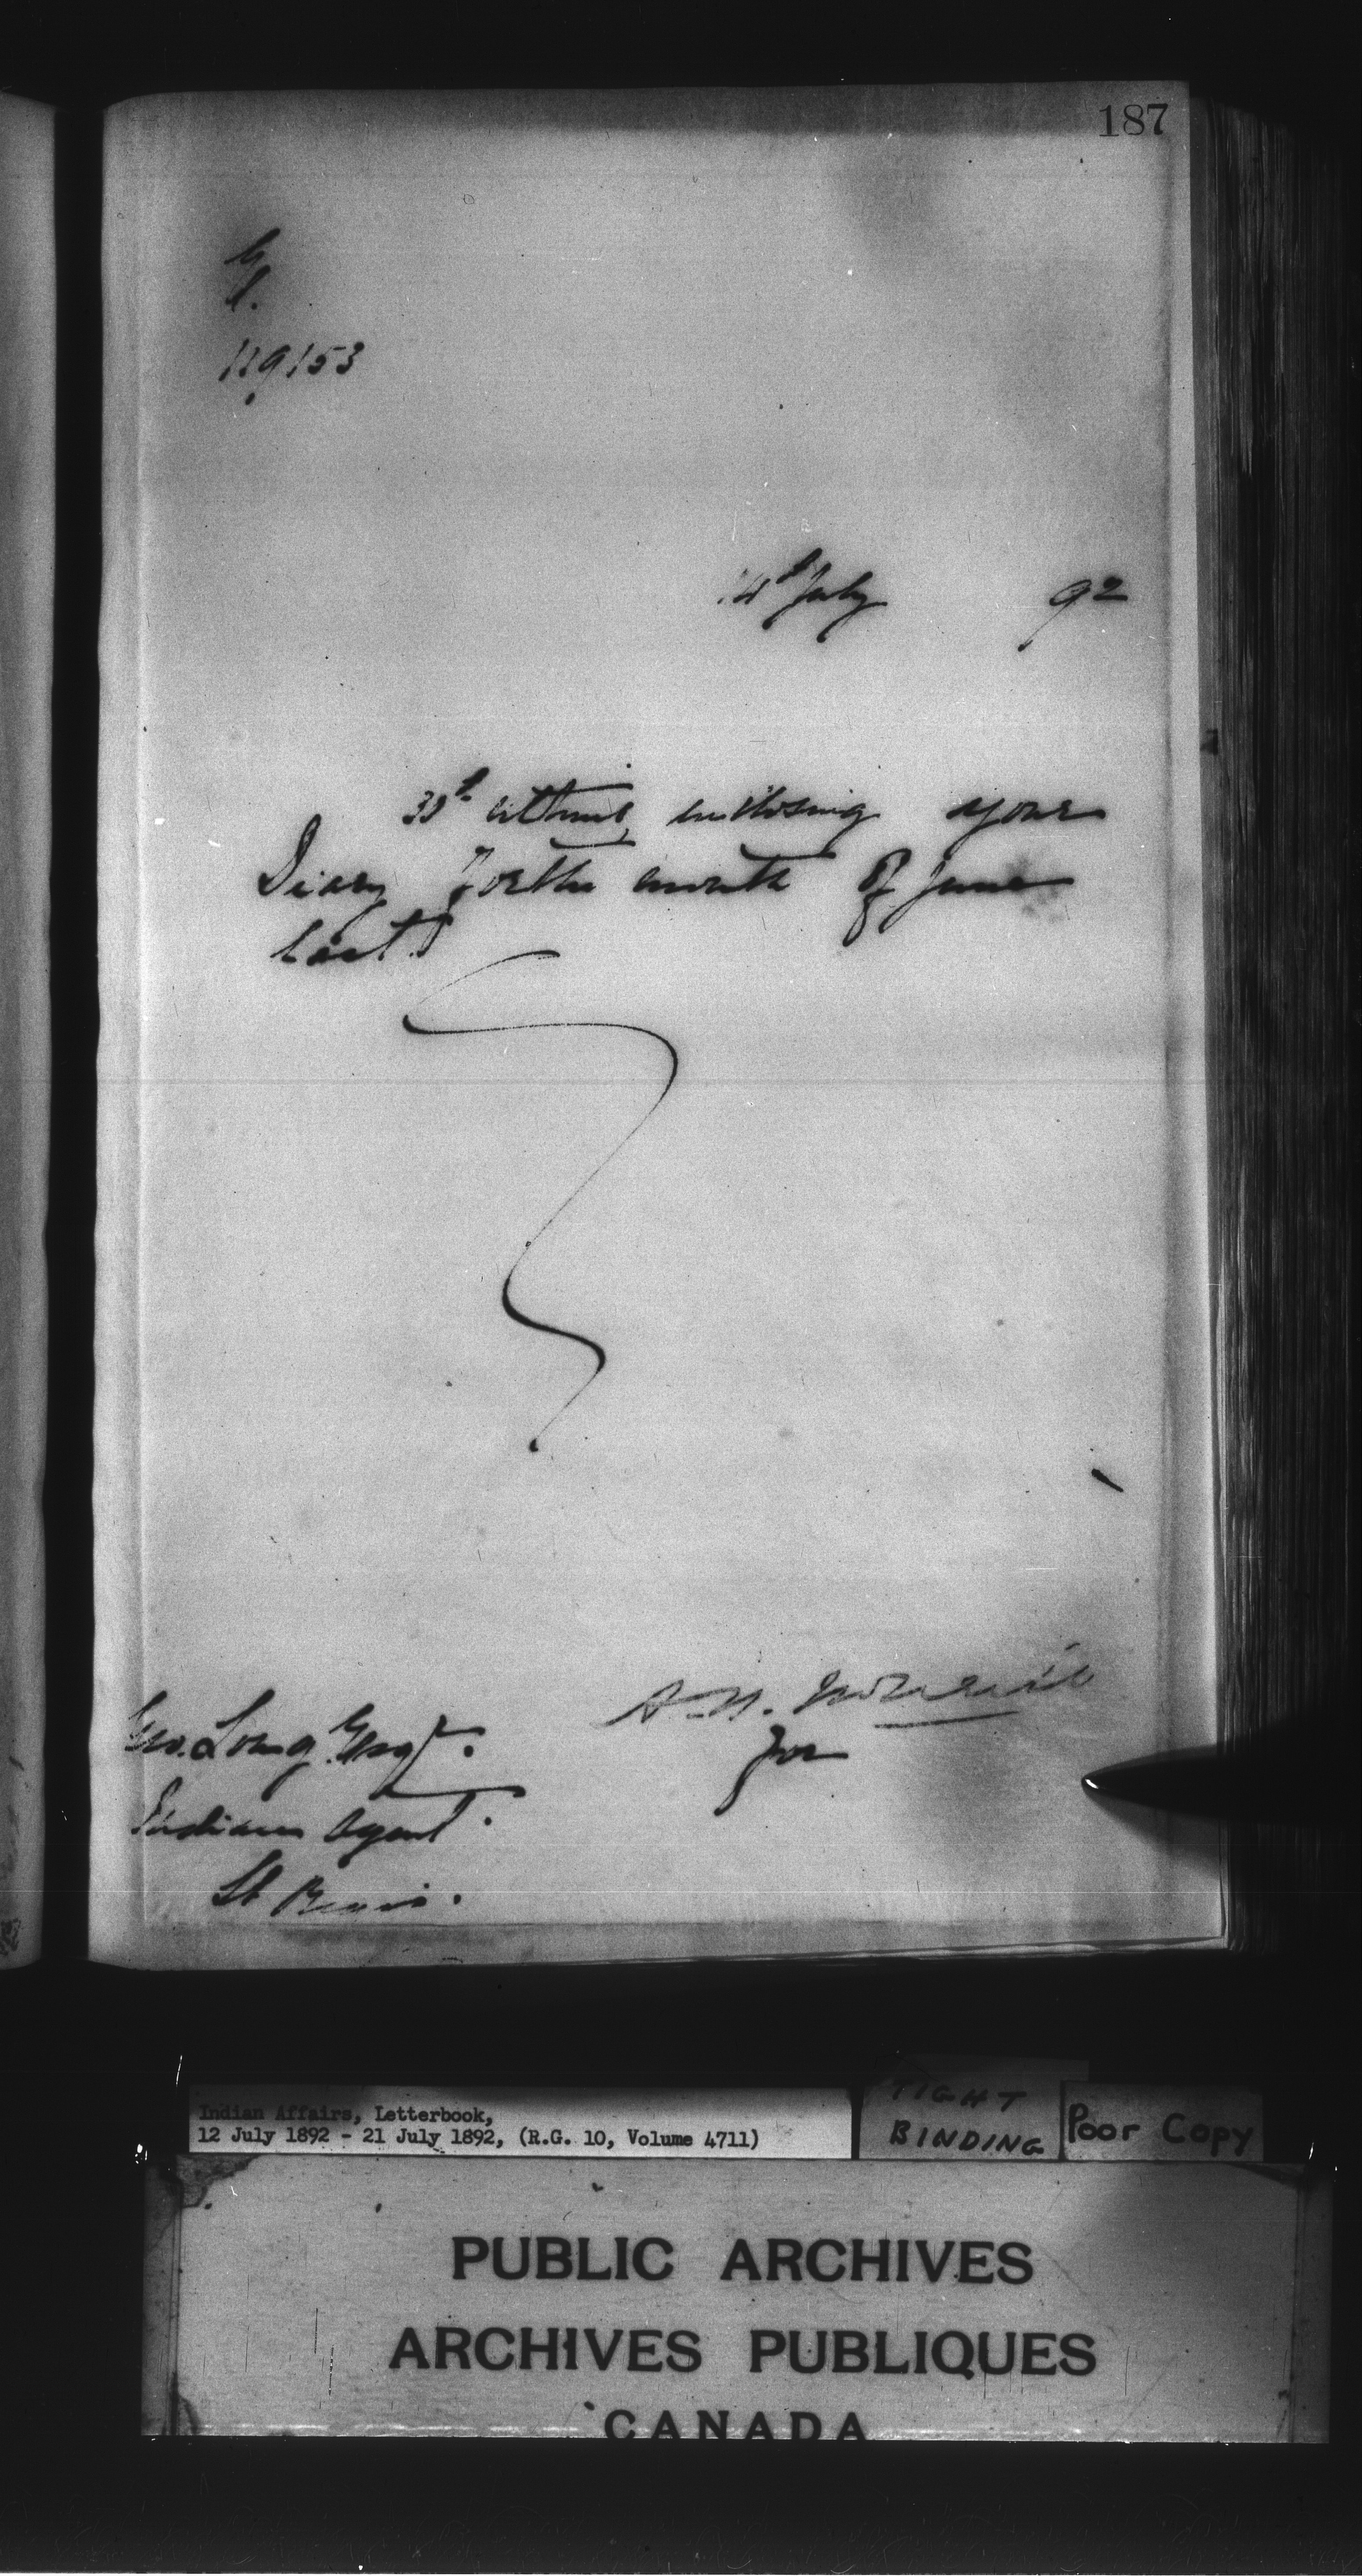 187
119153
14th July 92
30th ultimo enclosing your
Diary for the month of June
last.
A.N. McNeill
for
Geo. Long Esqr.
Indian Agent.
St Regis.
Indian Affairs, Letterbook,
12 July 1892 - 21 July 1892, (R.G. 10, Volume 4711)
TIGHT
BINDING
Poor Copy
PUBLIC ARCHIVES
ARCHIVES PUBLIQUES
CANADA